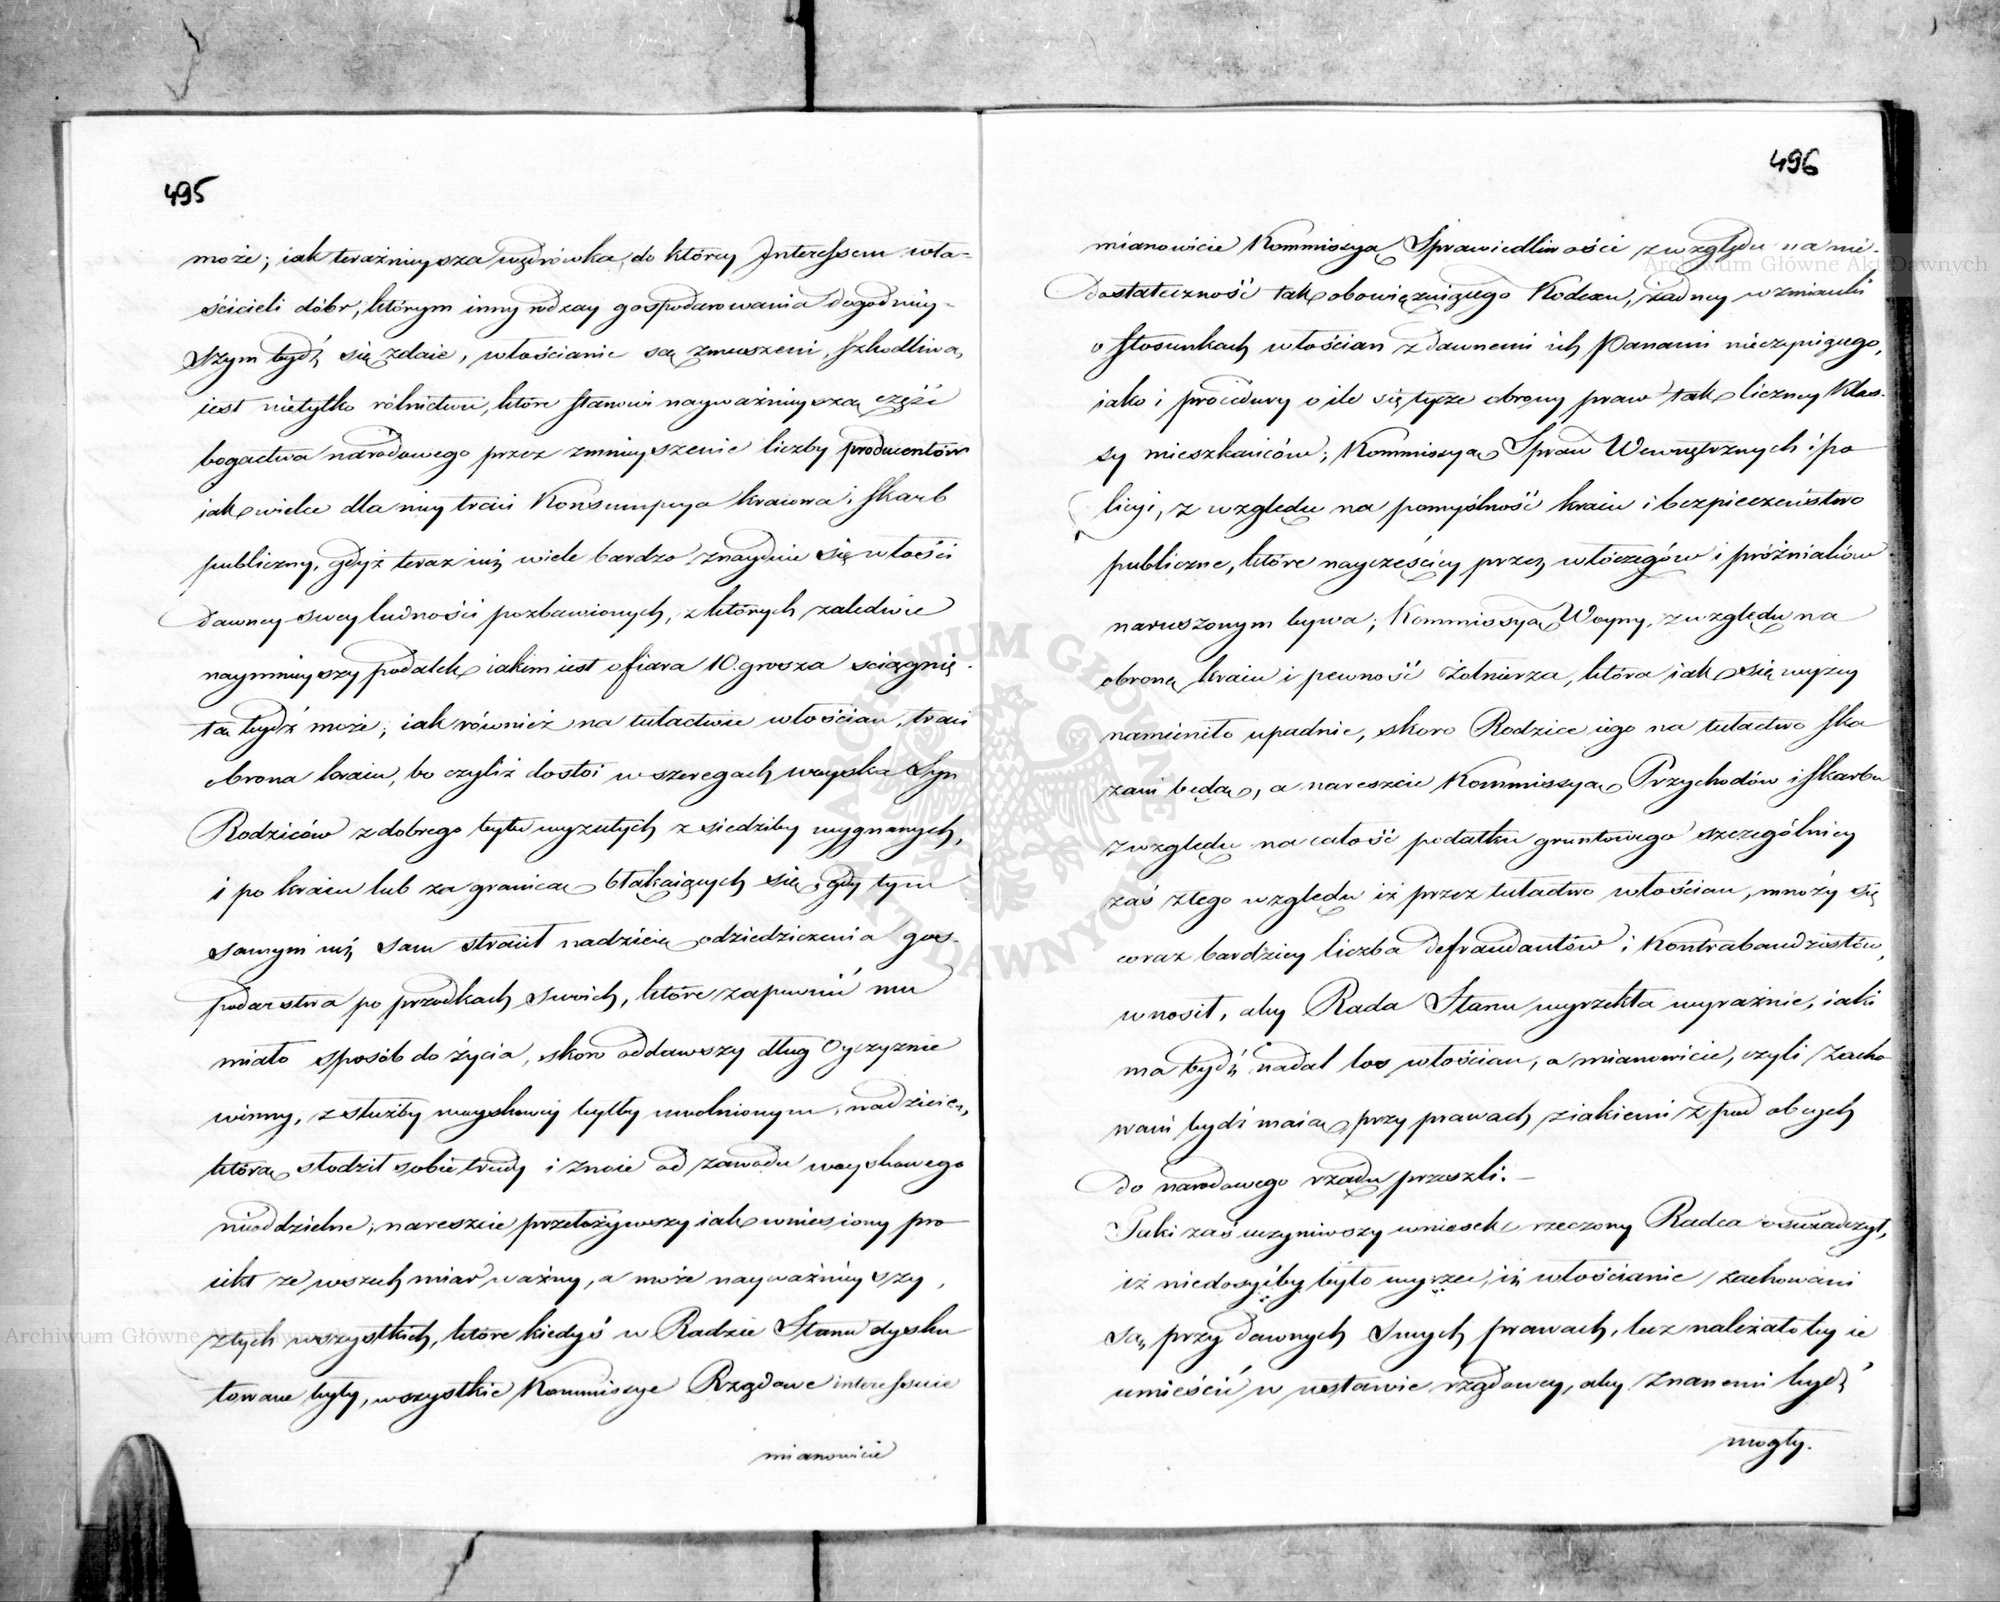 495
może; iak teraźnieysza wędrówka, do którey Interessem wła-
ścicieli dóbr, którym inny rodzay gospodarowania dogodniey-
szym bydź się zdaie, włościanie są zmuszeni, szkodliwa,
iest nietylko rólnictwu, które stanowi nayważnieyszą część
bogactwa narodowego przez zmnieyszenie liczby producentów
iak wiele dla niey traci Konsumpcya kraiowa i skarb
publiczny, gdyż teraz iuż wiele bardzo znayduie się włości
dawney swey ludności pozbawionych, z których zaledwie
naymnieyszy podatek iakim iest ofiara 10. grosza ściągnię-
ta bydź może; iak również na tułactwie włościan, traci
obrona kraiu, bo czyliż dostoi w szeregach woyska Syn
Rodziców z dobrego bytu wyzutych z siedziby wygnanych,
i po kraiu lub za granicą błąkaiących się, gdy tym
samym iuż sam stracił nadzieię odziedziczenia gos-
podarstwa po przodkach swoich, które zapewnić mu
miało sposób do życia, skoro oddawszy dług Oyczyznie
winny, z służby woyskowey byłby uwolnionym, nadzieię,
którą słodził sobie trudy i znoie od zawodu woyskowego
nieoddzielne; nareszcie przełożywszy iak wniesiony pro
iekt ze wszech miar ważny, a może nayważnieyszy,
z tych wszystkich, które kiedyś w Radzie Stanu dysku
towane były, wszystkie Kommissye Rządowe interessuie
mianowicie
496
mianowicie Kommissyą Sprawiedliwości z względu na nie-
dostateczność tak obowięzuiącego Kodexu, żadney wzmianki
o stosunkach włościan z dawnemi ich Panami nieczyniącego,
iako i procedury o ile się tycze obrony praw tak liczney Klas-
sy mieszkańców; Kommissyą Spraw Wewnętrznych i po
licyi, z względu na pomyślność kraiu i bezpieczeństwo
publiczne, które nayczęściey przez włóczęgów i próżniaków
naruszonym bywa; Kommissyą Woyny, z względu na
obronę kraiu i pewność Żołnierza, która iak się wyżey
namieniło upadnie, skoro Rodzice iego na tułactwo ska
zani będą, a nareszcie Kommissyą Przychodów i skarbu
z względu na całość podatku gruntowego szczególniey
zaś z tego względu iż przez tułactwo włościan, mnoży się
coraz bardziey liczba defraudantów i Kontrabandzistów,
wnosił, aby Rada Stanu wyrzekła wyraźnie, iaki
ma bydź nadal los włościan, a mianowicie, czyli zacho
wani bydź maią przy prawach z iakiemi z pod obcych
do narodowego rządu przeszli. –
Taki zaś uczyniwszy wniosek rzeczony Radca oświadczył,
iż niedosyćby było wyrzec, iż włościanie zachowani
są, przy dawnych swych prawach, lecz należałoby ie
umieścić w ustawie rządowey, aby znanemi bydź
mogły.